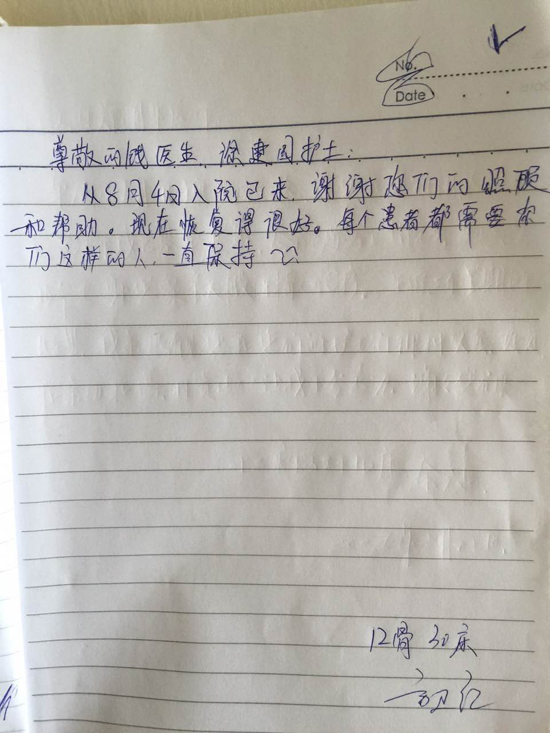 No.
Date
尊敬的钱医生、徐建国护士:
从8月4日入院已来,谢谢您们的照顾
和帮助。现在恢复得很好。每个患者都需要你
们这样的人,一直保持
12骨 30床